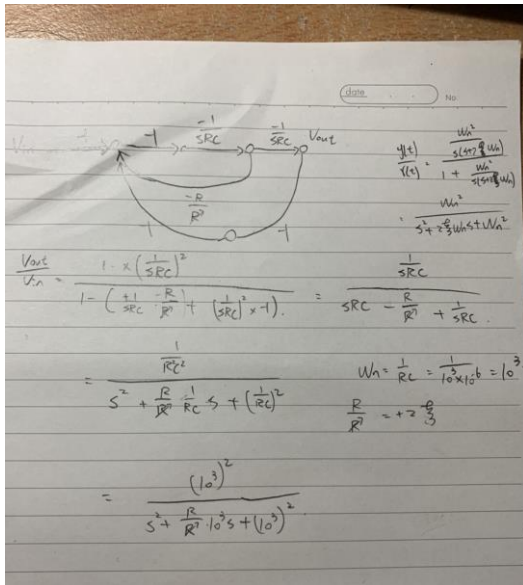 date No
-1 -1/SRC -1/SRC Vout
-R/R?
-1 -1
y(t)/r(t) = (Wn²/(s(s+2ξWn)))/(1 + Wn²/(s(s+2ξWn)))
= Wn²/(s²+2ξWns+Wn²)
Vout/Vin = (1·×(1/SRC)²)/(1-(+1/SRC · -R/R? + (1/SRC)²×-1)) = (1/SRC)/(SRC - R/R? + 1/SRC)
= (1/R²C²)/(s² + R/R? · 1/RC s + (1/RC)²)
Wn = 1/RC = 1/(10³×10⁻⁶) = 10³
R/R? = +2ξ
= (10³)²/(s² + R/R? · 10³s + (10³)²)